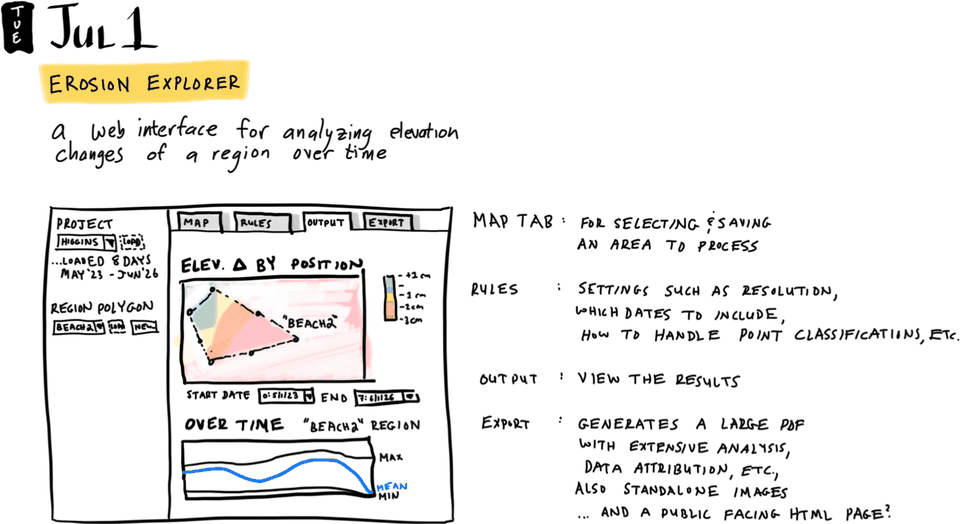 TUE
JUL 1
EROSION EXPLORER
a web interface for analyzing elevation
changes of a region over time
PROJECT
HIGGINS LOAD
...LOADED 8 DAYS
MAY '23 - JUN '26
REGION POLYGON
BEACH2 LOAD NEW
MAP
RULES
OUTPUT
EXPORT
ELEV. Δ BY POSITION
"BEACH2"
+2cm
-1cm
-2cm
-3cm
START DATE 0:5/1/23 END 7:6/1/26
OVER TIME "BEACH2" REGION
MAX
MEAN
MIN
MAP TAB : FOR SELECTING & SAVING
AN AREA TO PROCESS
RULES : SETTINGS SUCH AS RESOLUTION,
WHICH DATES TO INCLUDE,
HOW TO HANDLE POINT CLASSIFICATIONS, ETC.
OUTPUT : VIEW THE RESULTS
EXPORT : GENERATES A LARGE PDF
WITH EXTENSIVE ANALYSIS,
DATA ATTRIBUTION, ETC.,
ALSO STANDALONE IMAGES
... AND A PUBLIC FACING HTML PAGE?